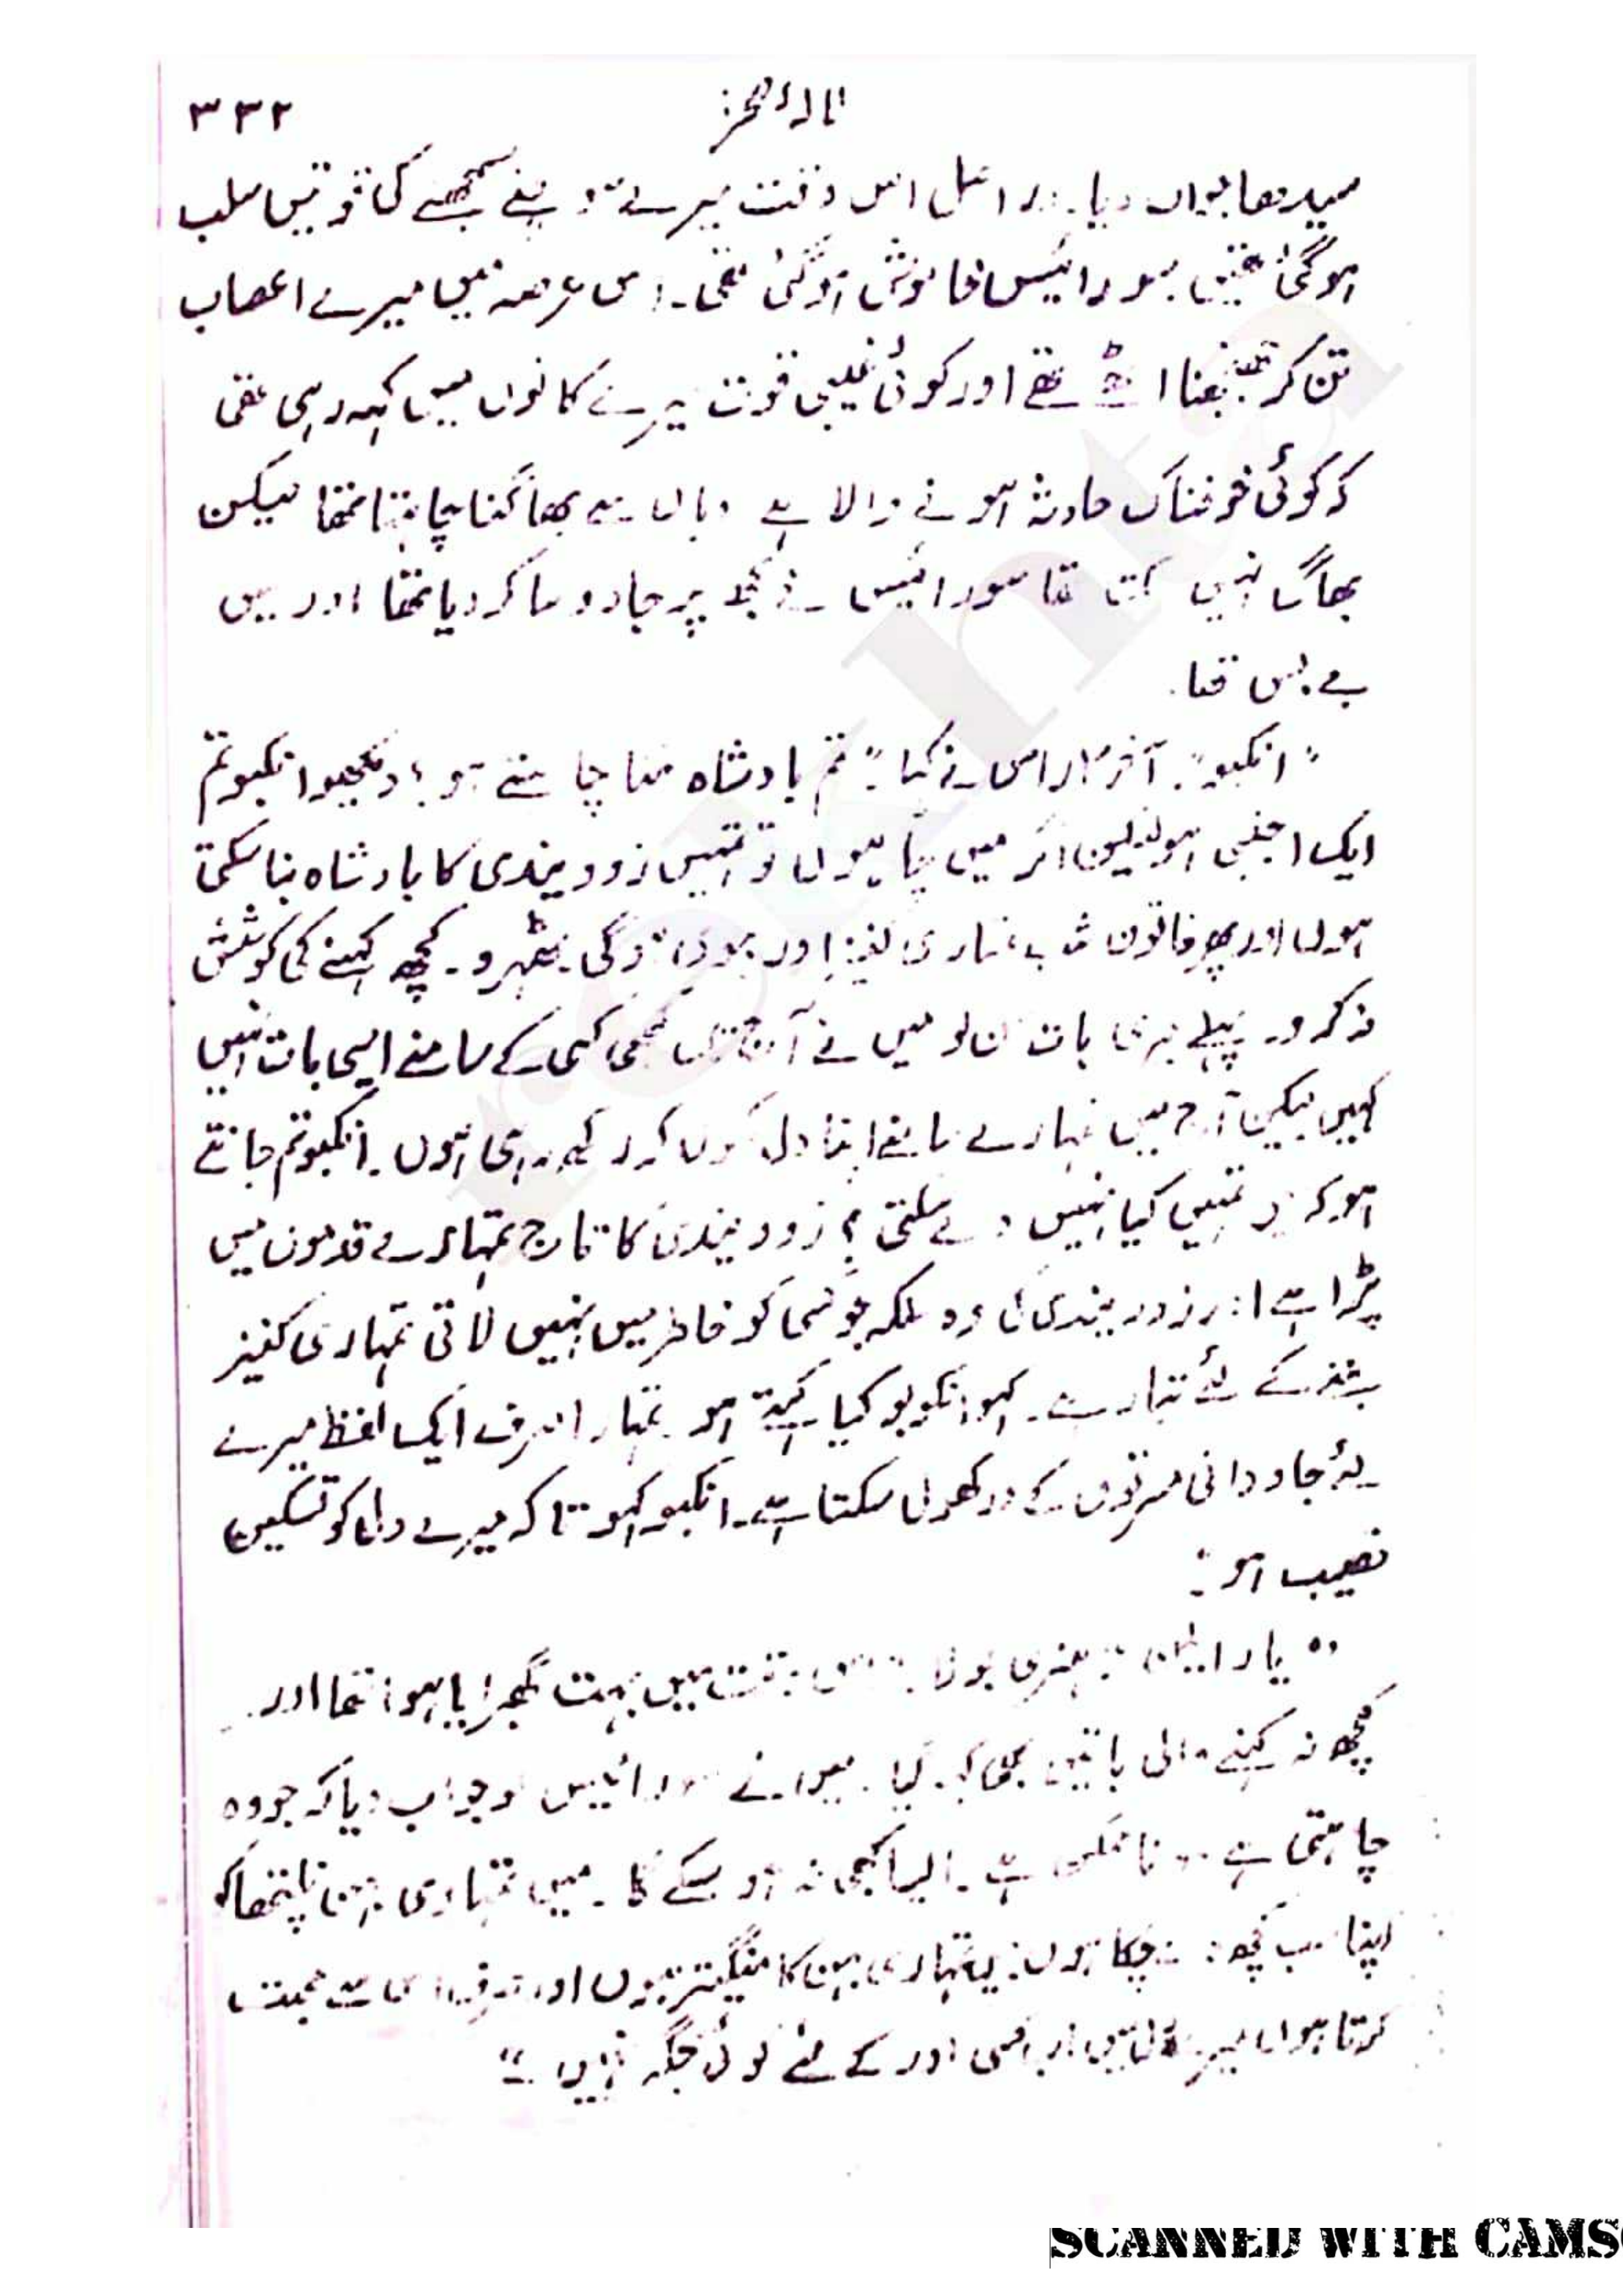 ۳۳۲
سیدھا جواب دیا۔ دراصل اس وقت میرے سوچنے سمجھنے کی قوتیں سلب
ہوگئی تھیں سورائیس خاموش ہوگئی تھی۔ اس عرصہ میں میرے اعصاب
تن کر جھنجھنا اٹھے تھے اور کوئی غیبی قوت میرے کانوں میں کہہ رہی تھی
کہ کوئی خوفناک حادثہ ہونے والا ہے وہاں سے بھاگنا چاہتا تھا لیکن
بھاگ نہیں سکتا تھا سورائیس نے مجھ پر جادو سا کر دیا تھا اور میں
بے بس تھا۔
"انکبو"۔ آخرکار اس نے کہا۔ "تم بادشاہ بننا چاہتے ہو؟ دیکھو انکبو تم
ایک اجنبی ہو لیکن اگر میں چاہوں تو تمہیں زوویندی کا بادشاہ بنا سکتی
ہوں اور پھر خاتون شب تمہاری کنیز اور بیوی ہوگی۔ ٹھہرو۔ کچھ کہنے کی کوشش
نہ کرو۔ پہلے میری بات سن لو میں نے آج تک کبھی کسی کے سامنے ایسی بات نہیں
کہیں لیکن آج میں تمہارے سامنے اپنا دل کھول کر رکھ رہی ہوں۔ انکبو تم جانتے
ہو کہ میں تمہیں کیا نہیں دے سکتی؟ زوویندی کا تاج تمہارے قدموں میں
پڑا ہے اور زوویندی کی وہ ملکہ جو کسی کو خاطر میں نہیں لاتی تمہاری کنیز
بننے کے لئے تیار ہے۔ کہو انکبو کیا کہتے ہو۔ تمہارا صرف ایک لفظ میرے
لئے جاودانی مسرتوں کے در کھول سکتا ہے۔ انکبو کہو تاکہ میرے دل کو تسکین
نصیب ہو۔"
"یار ایلن" ہنری بولا۔ "اس وقت میں بہت گھبرایا ہوا تھا اور
کچھ نہ کہنے والی باتیں بھی کہہ گیا۔ میں نے سورائیس کو جواب دیا کہ جو وہ
چاہتی ہے وہ ناممکن ہے۔ ایسا کبھی نہ ہو سکے گا۔ میں تمہاری بہن نائلپتھا کو
اپنا سب کچھ دے چکا ہوں۔ میں تمہاری بہن کا منگیتر ہوں اور صرف اسی سے محبت
کرتا ہوں میرے دل میں اب کسی اور کے لئے کوئی جگہ نہیں۔"
SCANNED WITH CAMS